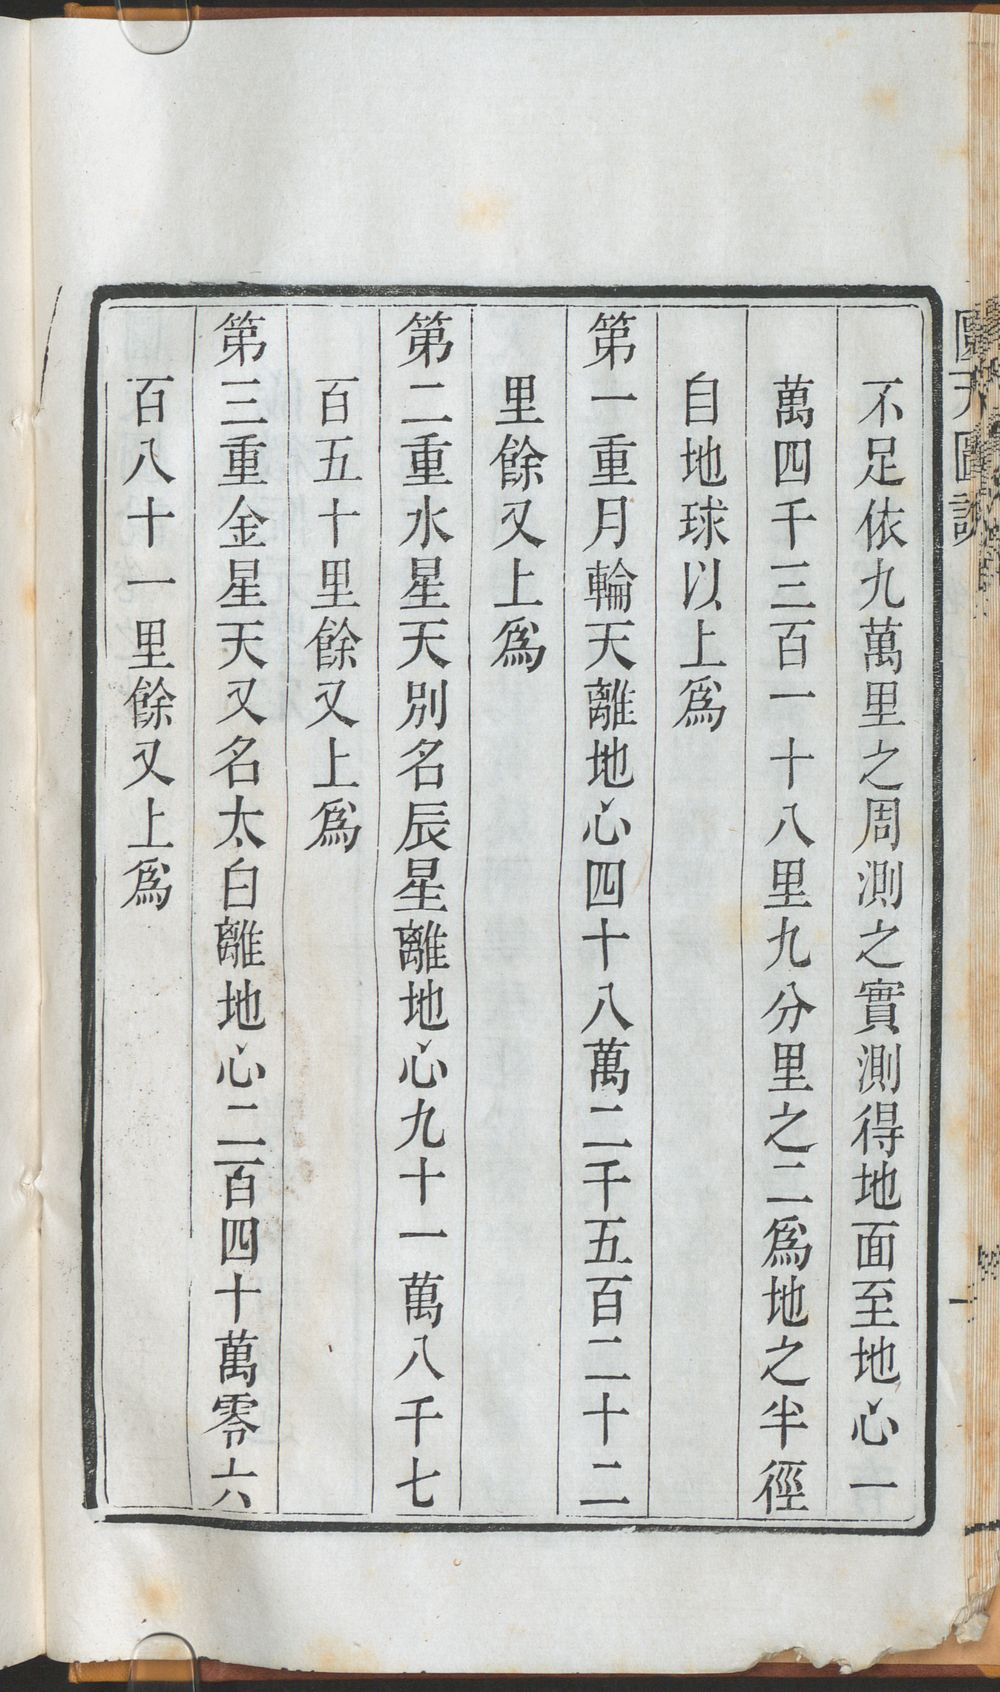 不足依九萬里之周測之實測得地面至地心一
萬四千三百一十八里九分里之二爲地之半徑
自地球以上爲
第一重月輪天離地心四十八萬二千五百二十二
里餘又上爲
第二重水星天別名辰星離地心九十一萬八千七
百五十里餘又上爲
第三重金星天又名太白離地心二百四十萬零六
百八十一里餘又上爲